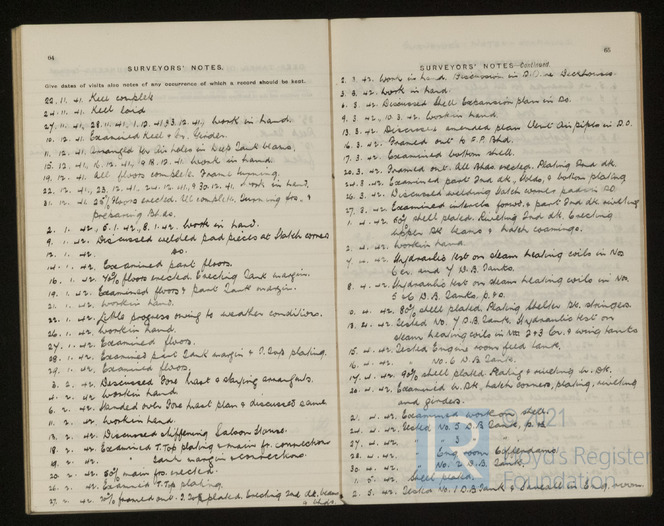 64
SURVEYORS' NOTES.
Give dates of visits also notes of any occurrence of which a record should be kept.
22. 11. 41. Keel complete
24. 11. 41. Keel laid
27. 11. 41, 28. 11. 41, 1. 12. 41, 3. 12. 41, Work in hand.
10. 12. 41. Examined Keel & Cr. Girder.
11. 12. 41. Arranged for Air holes in Deep Tank beams,
15. 12. 41, 16. 12. 41, 18. 12. 41. Work in hand.
19. 12. 41. All floors complete. Frame turning.
22. 12. 41, 23. 12. 41. 24. 12. 41, 30. 12. 41. Work in hand,
31. 12. 41. 25% Floors erected. All complete. Turning frs. &
preparing Bhds.
2. 1. 42, 5. 1. 42, 8. 1. 42. Work in hand.
9. 1. 42. Discussed welded pad pieces at Hatch corners
12. 1. 42. do.
14. 1. 42. Examined part floors.
16. 1. 42. 40% floors erected. Erecting Tank margin.
19. 1. 42. Examined floors & part Tank margin.
21. 1. 42. Work in hand.
22. 1. 42. Little progress owing to weather conditions.
26. 1. 42. Work in hand.
27. 1. 42. Examined floors.
28. 1. 42. Examined part Tank margin & T. Top plating.
29. 1. 42. Examined floors,
3. 2. 42. Discussed Fore Mast & staying arrangmts.
4. 2. 42. Work in hand
6. 2. 42. Handed over Fore mast plan & discussed same
11. 2. 42. Work in hand.
13. 2. 42. Discussed stiffening Saloon House.
18. 2. 42. Examined T. Top plating & main fr. connections
19. 2. 42. " Tank margin connections.
20. 2. 42. 50% main frs. erected.
26. 2. 42. Examined T. Top plating.
27. 2. 42. framed out. T. Top plated. Erecting 2nd dk. beams
& bhds.
65
SURVEYORS' NOTES—Continued.
2. 3. 42. Work in hand. Discussion in D.O. re Deckhouses.
3. 3. 42. Work in hand.
6. 3. 42. Discussed Shell Expansion plan in Do.
9. 3. 42, 10. 3. 42. Work in hand.
13. 3. 42. Discussed amended plan Vent Air pipes in D.O.
16. 3. 42. Framed out to F.P. Bhd.
17. 3. 42. Examined bottom shell.
20. 3. 42. Framed out. All Bhds erected. Plating 2nd dk.
24. 3. 42. Examined part 2nd dk, bhds, & bottom plating
26. 3. 42. Discussed welding hatch corner pads in D.O.
27. 3. 42. Examined internals forwd. & part 2nd dk riveting
1. 4. 42. 60% shell plated. Riveting 2nd dk. Erecting
upper dk beams & hatch coamings.
2. 4. 42. Work in hand
7. 4. 42. Hydraulic test on steam heating coils in Nos
6 cr. and 7 D.B. Tanks.
8. 4. 42. Hydraulic test on steam heating coils in Nos
5 & 6 D.B. Tanks. p. & s.
10. 4. 42. 80% shell plated. Plating Shelter dk. stringers.
13. 4. 42. Tested No. 7 D.B. Tank. Hydraulic test on
steam heating coils in Nos 2 & 3 Cr. & wing tanks
15. 4. 42. Tested Engine room feed tank,
16. 4. 42. " No. 6 D.B. Tank.
17. 4. 42. 90% shell plated. Plating & riveting U. Dk.
20. 4. 42. Examined U. Dk, hatch corners, plating, riveting
and girders.
21. 4. 42. Examined work on shell.
24. 4. 42. Tested No. 5 D.B. Tank, p. & s.
27. 4. 42. " 3 " "
28. 4. 42. " Eng. room Cofferdams.
30. 4. 42. " No. 2 D.B. Tank.
1. 5. 42. Shell plated.
2. 5. 42. Tested No. 1 D.B. Tank & Eng. room
© 2021
Lloyd's Register
Foundation